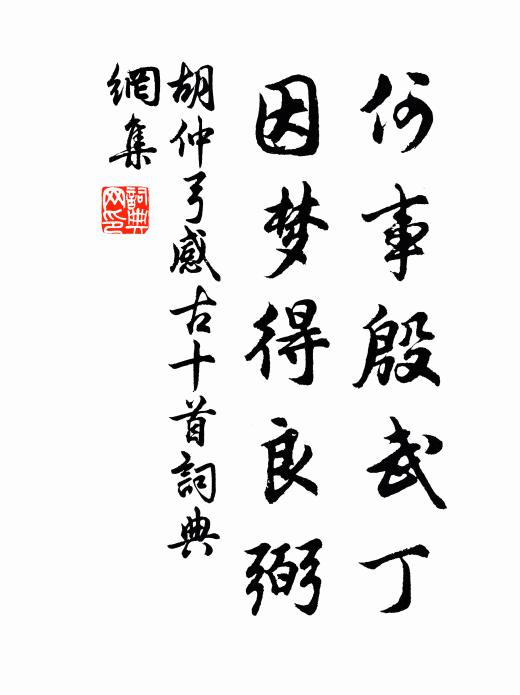 何事殷武丁
因梦得良弼
胡仲弓感古十首詞典
網集
詞典網印